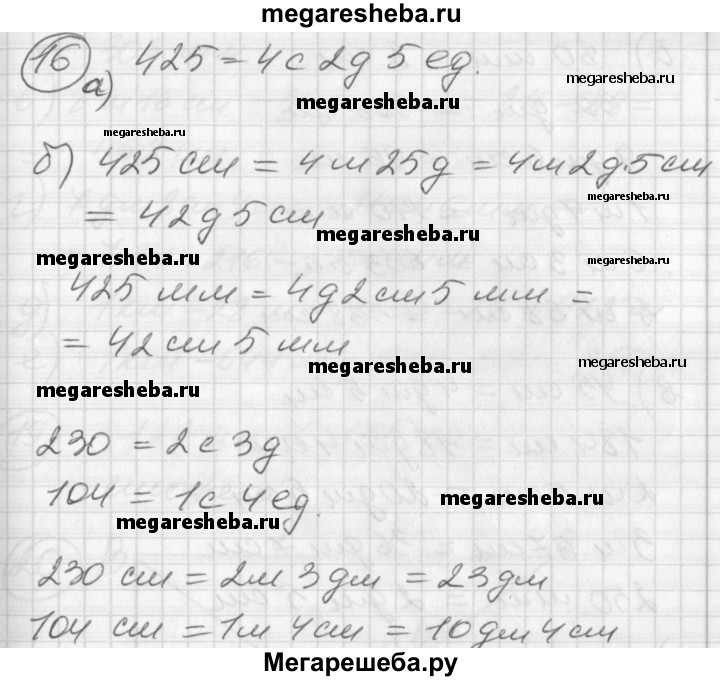 megaresheba.ru
16 а) 425 = 4с 2д 5 ед.
megaresheba.ru
megaresheba.ru
megaresheba.ru
б) 425 см = 4м 25д = 4м 2д. 5 см
megaresheba.ru
= 42д 5 см
megaresheba.ru
megaresheba.ru
megaresheba.ru
425 мм = 4д 2 см 5 мм =
= 42 см 5 мм
megaresheba.ru
megaresheba.ru
megaresheba.ru
230 = 2с 3д
104 = 1с 4 ед.
megaresheba.ru
megaresheba.ru
230 см = 2м 3 дм = 23 дм
104 см = 1м 4 см = 10 дм 4 см
Мегарешеба.ру